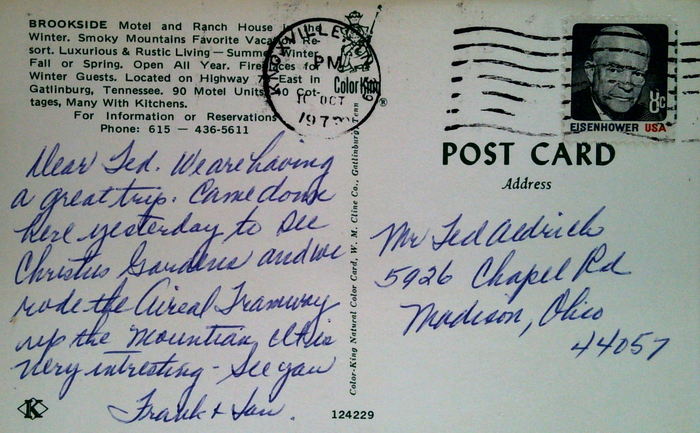 BROOKSIDE Motel and Ranch House in the
Winter. Smoky Mountains Favorite Vacation Re-
sort. Luxurious & Rustic Living — Summer, Winter,
Fall or Spring. Open All Year. Fireplaces for
Winter Guests. Located on Highway 73 East in
Gatlinburg, Tennessee. 90 Motel Units, 40 Cot-
tages, Many With Kitchens.
For Information or Reservations
Phone: 615 — 436-5611
KNOXVILLE, TENN
PM
10 OCT
197
Color-King
®
EISENHOWER USA
8c
POST CARD
Address
Dear Ted. We are having
a great trip. Came down
here yesterday to see
Christus Gardens and we
rode the Aireal Tramway
up the mountian, It is
very intresting - See you
Frank +
Mr Ted Aldrich
5926 Chapel Rd
Madison, Ohio
44057
Color-King Natural Color Card, W. M. Cline Co., Gatlinburg, Tenn
K
124229